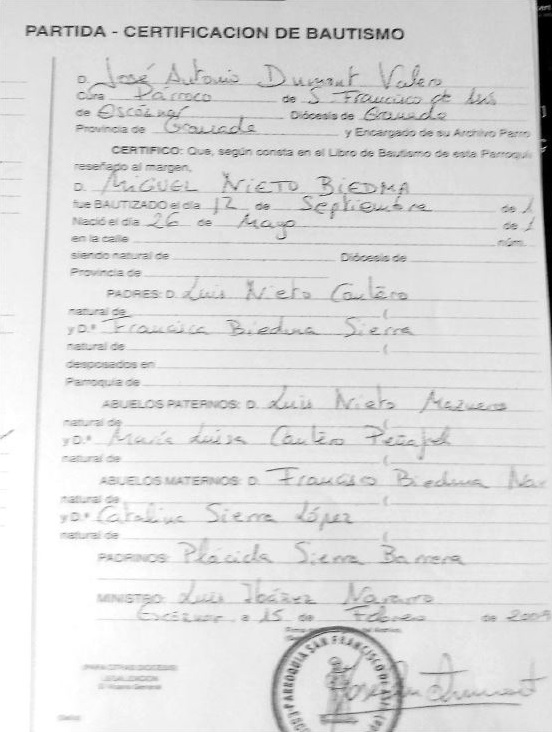 PARTIDA - CERTIFICACION DE BAUTISMO
D. José Antonio Dumont Valero
Cura Párroco de S. Francisco de Asís
de Escóznar Diócesis de Granada
Provincia de Granada y Encargado de su Archivo Parro
CERTIFICO: Que, según consta en el Libro de Bautismo de esta Parroqui
reseñado al margen,
D. MIGUEL NIETO BIEDMA
fue BAUTIZADO el día 12 de Septiembre de 1
Nació el día 26 de Mayo de 1
en la calle núm.
siendo natural de Diócesis de
Provincia de
PADRES: D. Luis Nieto Cantero
natural de (
y D.ª Francisca Biedma Sierra
natural de (
desposados en
Parroquia de
ABUELOS PATERNOS: D. Luis Nieto
natural de (
y D.ª María Luisa Cantero Peñafiel
natural de (
ABUELOS MATERNOS: D. Francisco Biedma Nar
natural de (
y D.ª Catalina Sierra López
natural de (
PADRINOS: Plácida Sierra Barrera
MINISTRO: Luis Ibáñez Navarro
Escóznar a 15 de Febrero de 2009
(PARA OTRAS DIOCESIS)
LEGALIZACION
El Vicario General
PARROQUIA SAN FRANCISCO DE ASIS